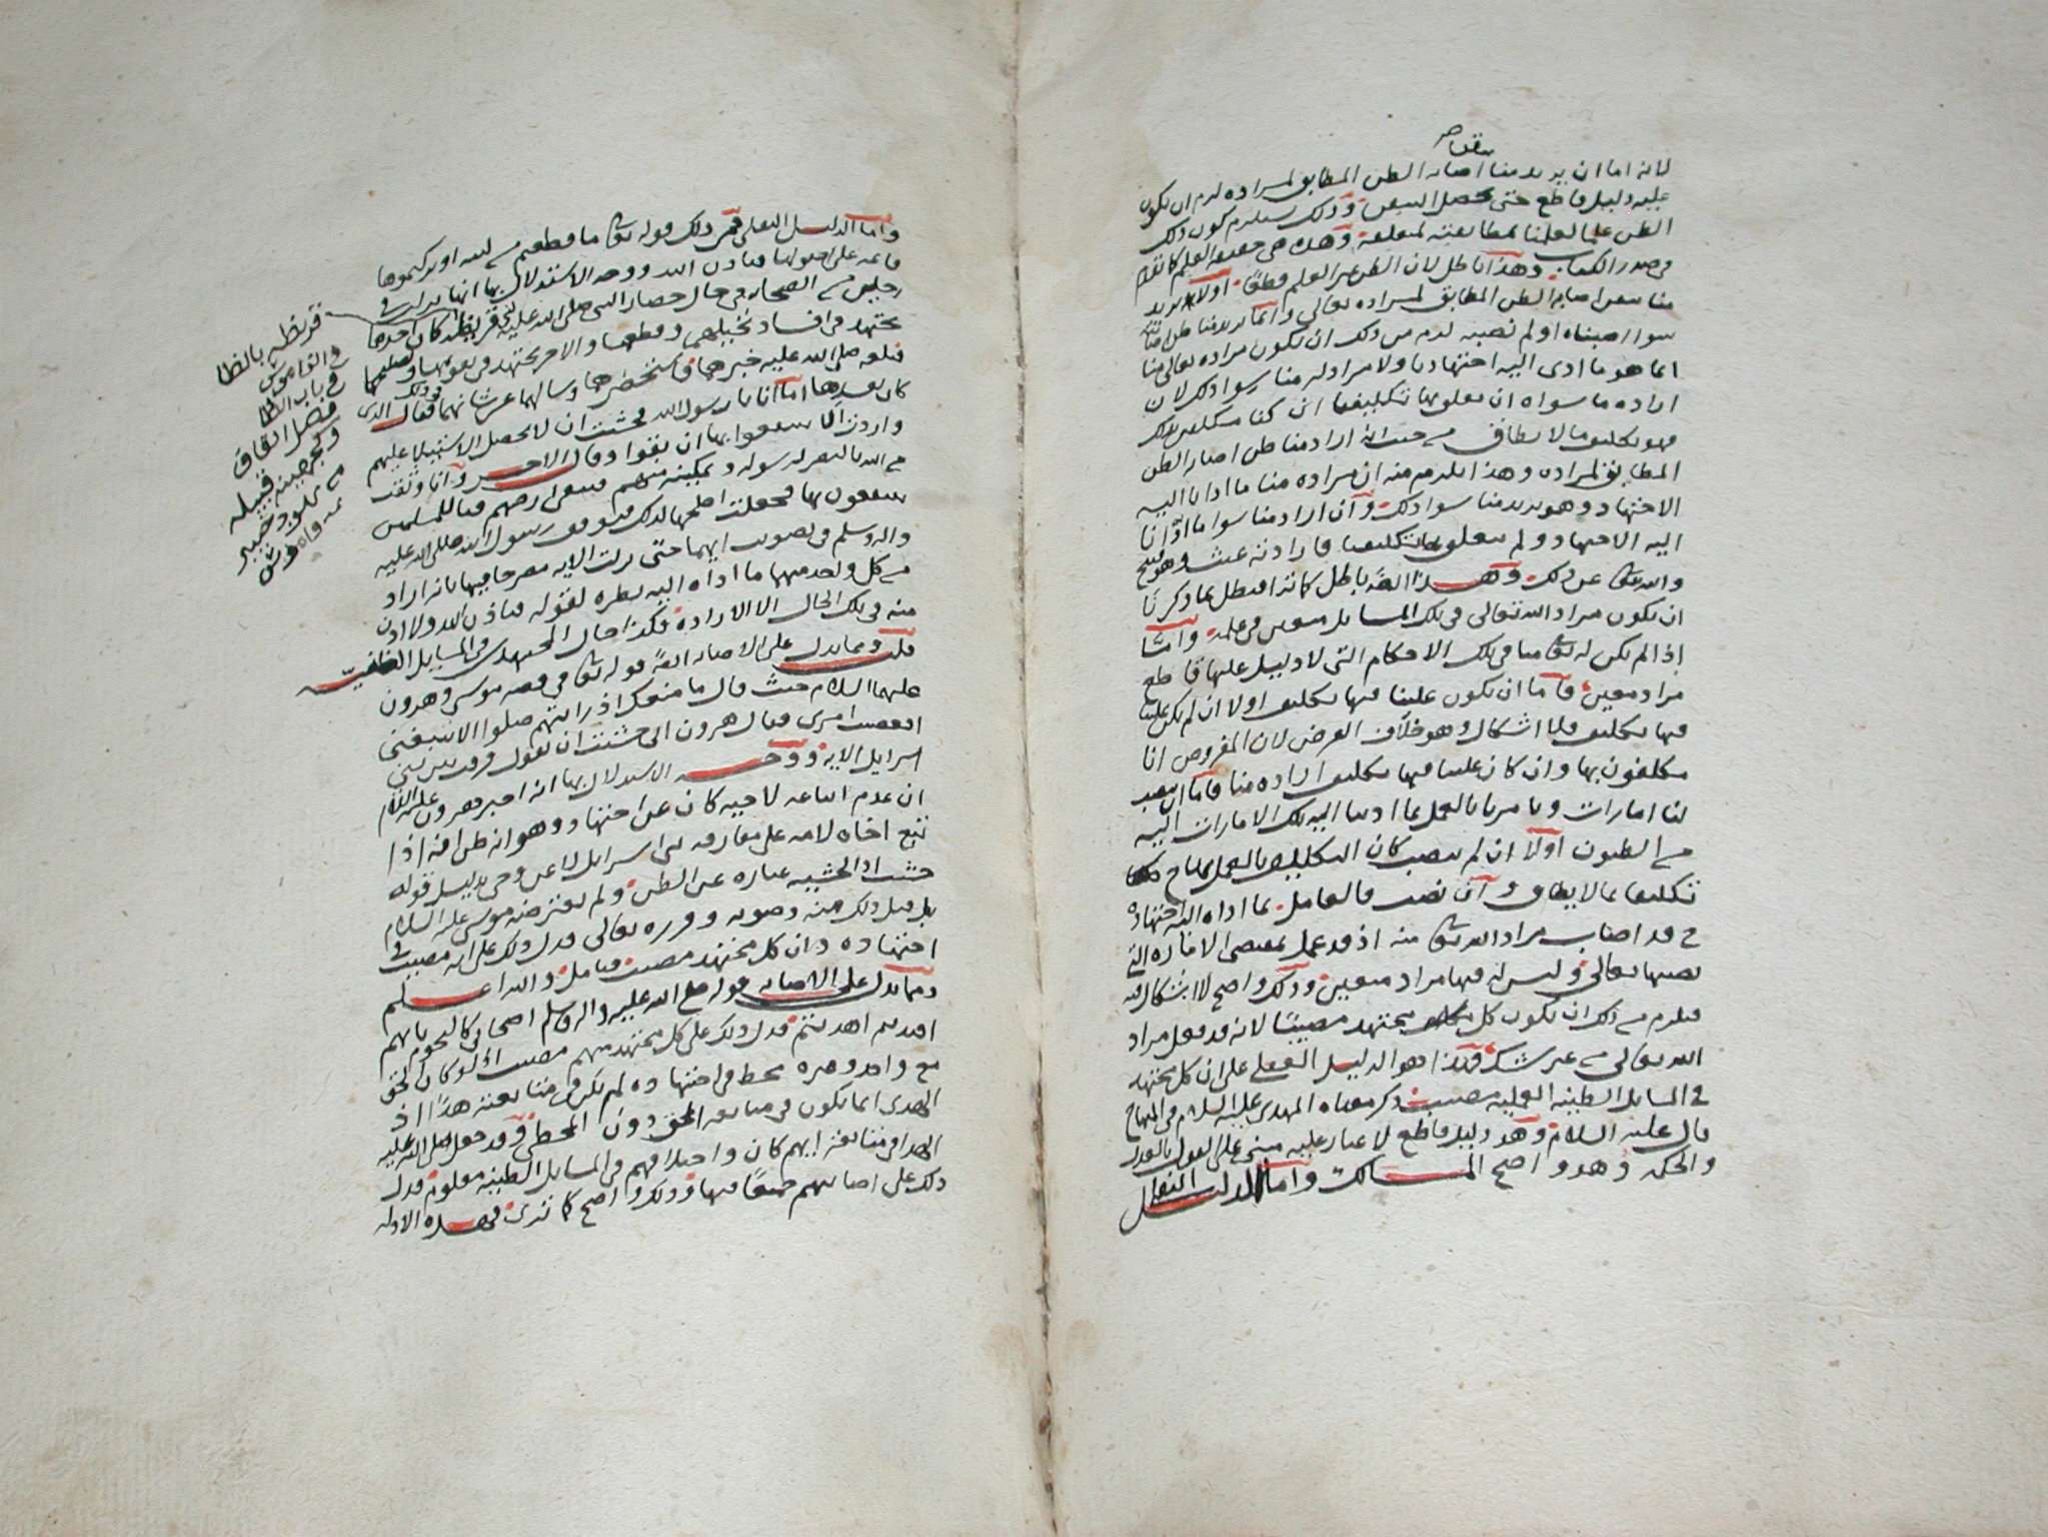 لانه اما ان يريد منا اصابه الظن المطابق لمراده لزم ان يكون
عليه دليل قاطع حتى يحصل اليقين وذلك يستلزم كون ذلك
الظن علما لعلمنا بمطابقته لمتعلقه وهذه هي حقيقه العلم كما تقدم
في صدر الكتاب وهذا باطل لان الظن غير العلم قطعا اولا يريد
منا اصابه الظن المطابق لمراده تعالى وانما يريد منا ظن
سوا اصبناه او لم نصبه لزم من ذلك ان يكون مراده تعالى منا
انما هو ما ادى اليه اجتهادنا ولا مراد له منا سوا ذلك لان
اراده ما سواه ان تعلق بها تكليفنا ان كنا مكلفين بذلك
فهو تكليف ما لا يطاق من حيث انه اراد منا ظن اصابه الظن
المطابق لمراده وهذا يلزم منه ان مراده منا ما ادانا اليه
الاجتهاد وهو يريد منا سوا ذلك وان اراد منا سوا ما ادانا
اليه الاجتهاد ولم يتعلق بها تكليفنا فارادته عبث وهو قبيح
والله تعالى عن ذلك وهذا ايضا باطل كما ترا فبطل بما ذكرنا
ان يكون مراد الله تعالى في تلك المسايل معين في علمه وامّا
اذا لم يكن له تعالى منا في تلك الاحكام التي لا دليل عليها قاطع
مراد معين فاما ان يكون علينا فيها تكليف اولا ان لم يكن علينا
فيها تكليف فلا اشكال وهو خلاف الفرض لان المفروض انا
مكلفون بها وان كان علينا فيها تكليف اراده منا فاما ان ينصب
لنا امارات ويامرنا بالعمل بما ادتنا اليه تلك الامارات
من الظنون اولا ان لم ينصب كان التكليف بالعمل
تكليفا بما لا يطاق وان نصب فالعامل بما اداه اليه اجتهاده
ح قد اصاب مراد الله تعالى منه اذ قد عمل بمقتضى الاماره التي
نصبها تعالى وليس له فيها مراد معين وذلك واضح لا اشكال فيه
فيلزم من ذلك ان يكون كل مجتهد مصيبا لانه قد فعل مراد
الله تعالى من غير شك فهذا هو الدليل العقلي على ان كل مجتهد
في المسايل الظنيه العمليه مصيب ذكر معناه المهدي عليه السلام في المنهاج
قال عليه السلام وهو دليل قاطع لا غبار عليه مبني على القول بالعدل
والحكمه وهو واضح المسالك واما الدليل النقلي
واما الدليل النقلي فمن ذلك قوله تعالى ما قطعتم من لينه او تركتموها
قائمه على اصولها فباذن الله ووجه الاستدلال بها انها نزلت في
رجلين من الصحابه في حال حصار النبي صلى الله عليه لبني قريظه كان احدهما
يجتهد في افساد نخيلهم وقطعها والاخر يجتهد في تقويمها وتصليحها
فبلغه صلى الله عليه خبرهما فاستحضرهما وسالهما عن شانهما فقال الذي
كان يفسدها اما انا يا رسول الله فخشيت ان لا يحصل الاستيلا عليهم
واردت الا ينتفعوا بها ان بقوا وقال الاخر وانا وثقت
من الله بالنصر لرسوله وتمكينه منهم فتبقى ارضهم فيا للمسلمين
ينتفعون بها فجعلت اصلحها لذلك فتوقف رسول الله صلى الله عليه
واله وسلم في تصويب ايهما حتى نزلت الايه مصرحا فيها بانه اراد
من كل واحد منهما ما اداه اليه نظره لقوله فباذن الله ولا اذن
منه في تلك الحال الا الاراده فكذا حال المجتهدين في المسايل الظنيه
قلت ومما يدل على الاصابه ايضا قوله تعالى في قصه موسى وهرون
عليهما السلام حيث قال ما منعك اذ رايتهم ضلوا الا تتبعني
افعصيت امري فقال هرون اني خشيت ان تقول فرقت بين بني
اسرايل الايه ووجه الاستدلال بها انه اخبر هرون عليه السلام
ان عدم اتباعه لاخيه كان عن اجتهاد وهو انه ظن انه اذا
تبع اخاه لامه على مفارقه بني اسرايل لا عن وحي بدليل قوله
خشيت اذ الخشيه عباره عن الظن ولم يعترضه موسى عليه السلام
بل قبل ذلك منه وصوبه وقرره تعالى فدل ذلك على انه مصيب في
اجتهاده وان كل مجتهد مصيب فتامل والله اعلم
ومما يدل على الاصابه قوله صلى الله عليه واله وسلم اصحابي كالنجوم بايهم
اقتديتم اهتديتم فدل ذلك على كل مجتهد منهم مصيب اذ لو كان الحق
مع واحد وغيره مخط في اجتهاده لم يكن في متابعته هدا اذ
الهدى انما يكون في متابعه المحق دون المخطي وقد جعل صلى الله عليه
الهدا في متابعه ايهم كان واختلافهم في المسايل الظنيه معلوم فدل
ذلك على اصابتهم جميعا فيها وذلك واضح كما ترى في هذه الادله
قريظه بالظا
والقاموس
في باب الظا
فصل القاف
وكجهينه قبيله
من يهود خيبر